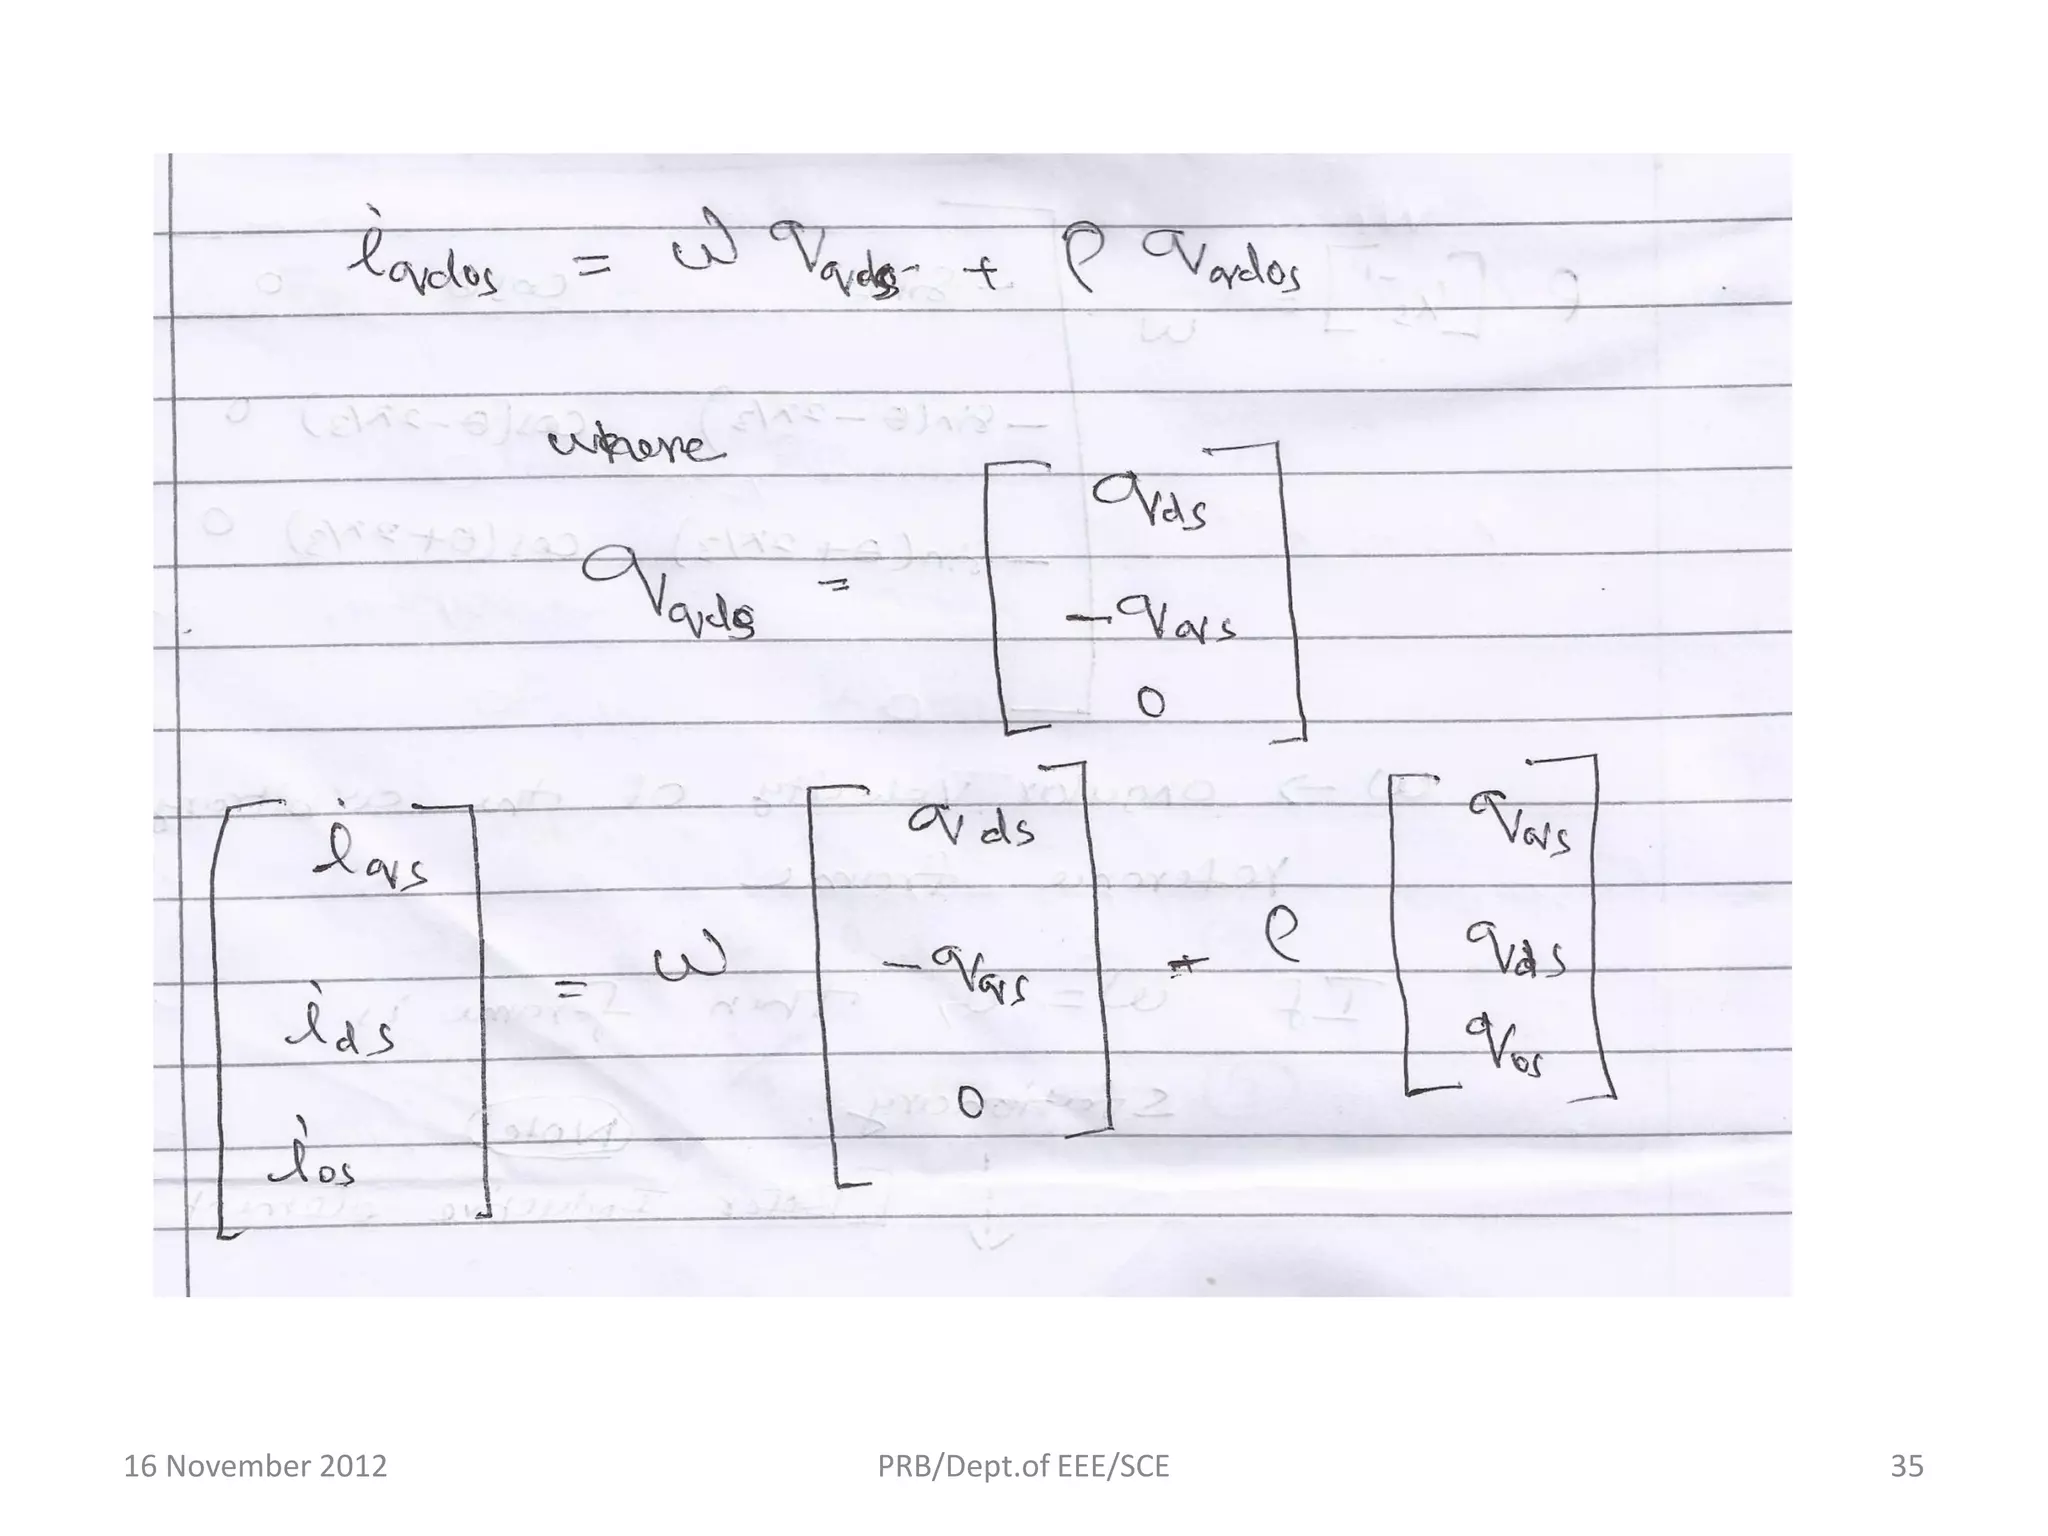 i_qdos = ω q_qds + ρ q_qdos
where
q_qds = [ q_ds
- q_qs
0 ]
[ i_qs
i_ds
i_os ] = ω [ q_ds
- q_qs
0 ] + ρ [ q_qs
q_ds
q_os ]
16 November 2012 PRB/Dept.of EEE/SCE 35